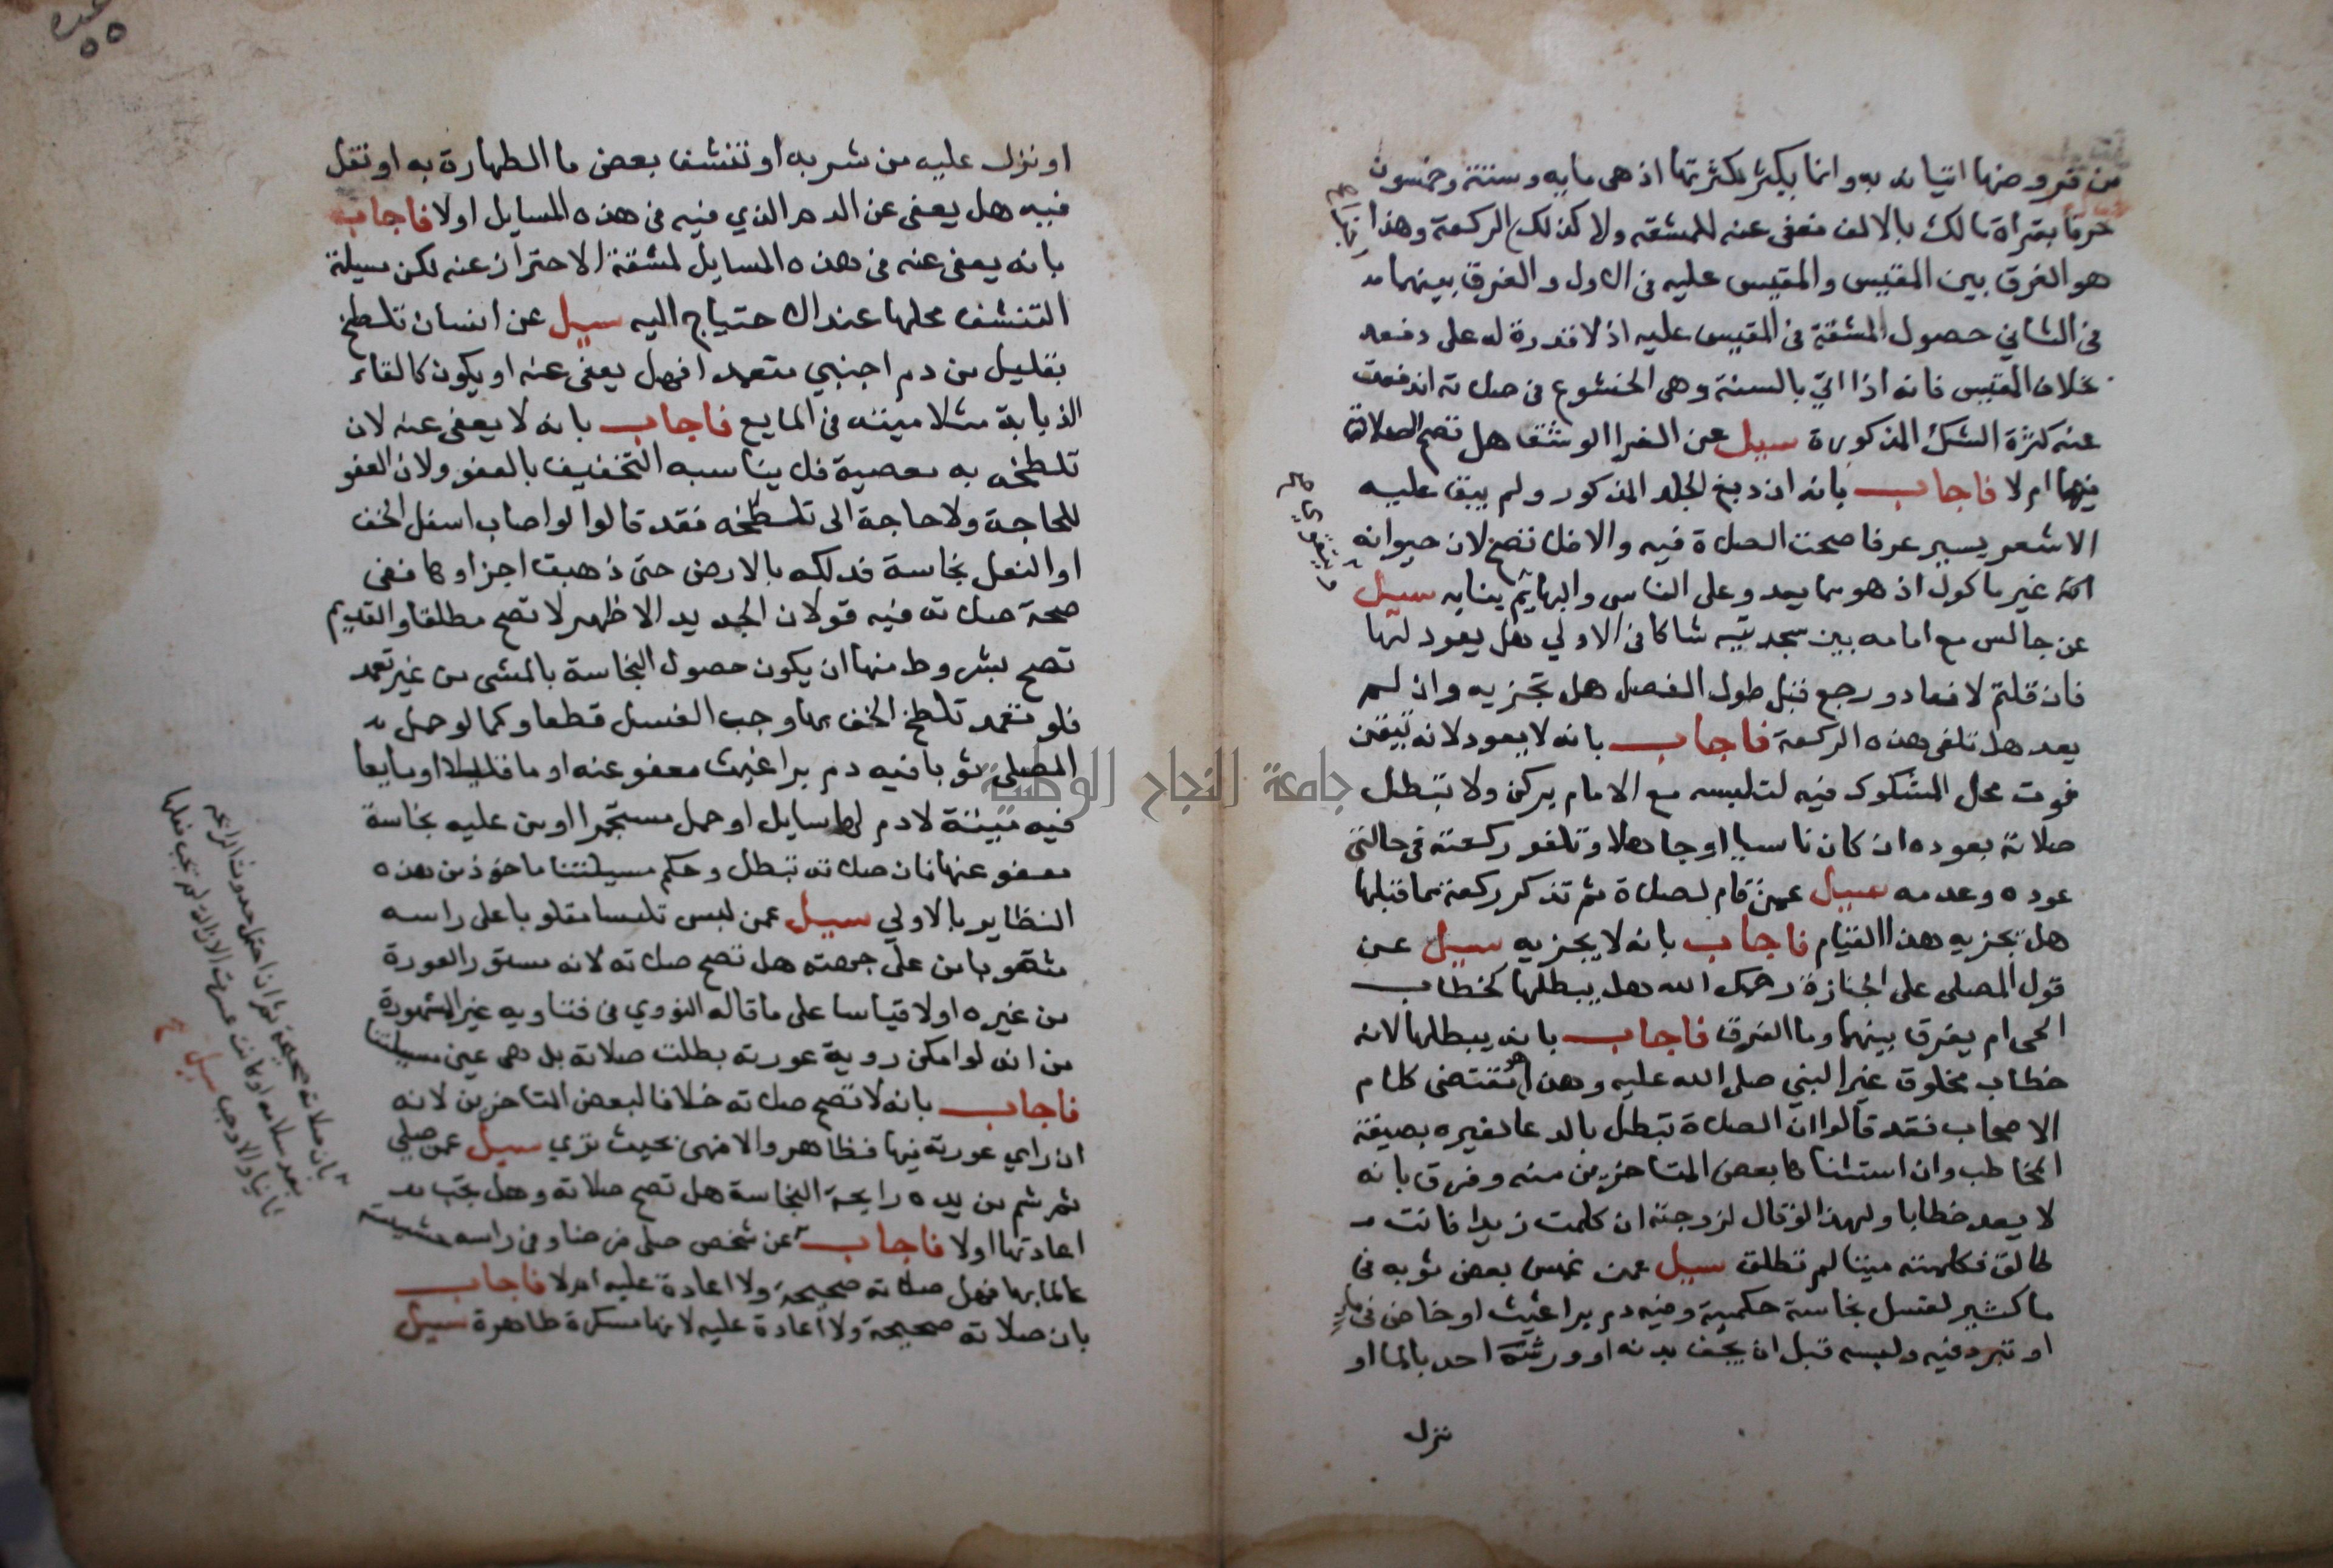 من فروضها اتيانه به وانما يكثر لكثرتها اذ هى مايه وستة وخمسون
حرفا بقراة مالك بالالف فعفى عنه للمشقه ولا كذلك الركعة وهذا
هو الفرق بين المقيس والمقيس عليه فى الاول والفرق بينهما
فى الثاني حصول المشقة فى المقيس عليه اذ لا قدرة له على دفعه
بخلاف المقيس فانه اذا اتي بالسنة وهى الخشوع فى صلاته اندفعت
عنه كثرة الشك المذكورة سيل عن الفرا الوشق هل تصح الصلاة
فيها ام لا فاجاب بانه ان دبغ الجلد المذكور ولم يبق عليه
الا شعر يسير عرفا صحت الصلاة فيه والا فلا تصح لان حيوانه
غير ماكول اذ هو مما يعدو على الناس والبهايم بنابه سيل
عن جالس مع امامه بين سجدتيه شاكا فى الاولي هل يعود لها
فان قلتم لا فعاد ورجع قبل طول الفصل هل تجزيه وان لم
يعد هل تلغى هذه الركعة فاجاب بانه لا يعود لانه تيقن
فوت محل المشكوك فيه لتلبسه مع الامام بركن ولا تبطل
صلاته بعوده ان كان ناسيا او جاهلا وتلغو ركعته فى حالتى
عوده وعدمه سيل عمن قام لصلاة ثم تذكر ركعة مما قبلها
هل تجزيه هذا القيام فاجاب بانه لا يجزيه سيل عن
قول المصلى على الجنازة رحمك الله هل يبطلها كخطاب
الحى ام يفرق بينهما وما الفرق فاجاب بانه يبطلها لانه
خطاب مخلوق غير النبي صلى الله عليه وهذا مقتضى كلام
الاصحاب فقد قالوا ان الصلاة تبطل بالدعا لغيره بصيغة
المخاطب وان استثنا ها بعض المتاخرين منه وفرق بانه
لا يعد خطابا ولهذا لو قال لزوجته ان كلمت زيدا فانت
طالق فكلمته ميتا لم تطلق سيل عمن غمس بعض ثوبه فى
ما كثير لغسل نجاسة حكمية وفيه دم براغيث او خاض فى
او تبرد فيه ولبسه قبل ان يجف بدنه او ورشه احد بالما او
نزل
او نزل عليه من شربه او تنشف بعض ما الطهارة به او تقل
فيه هل يعفى عن الدم الذي فيه فى هذه المسايل اولا فاجاب
بانه يعفى عنه فى هذه المسايل لمشقة الاحتراز عنه لكن مسيلة
التنشف محلها عند الاحتياج اليه سيل عن انسان تلطخ
بقليل من دم اجنبي متعمدا فهل يعفى عنه او يكون كالقاء
الذبابة مثلا ميتة فى المايع فاجاب بانه لا يعفى عنه لان
تلطخه به معصية فلا يناسبه التخفيف بالعفو ولان العفو
للحاجة ولا حاجة الى تلطخه فقد قالوا لو اصاب اسفل الخف
او النعل نجاسة فدلكه بالارض حتى ذهبت اجزاوها ففى
صحة صلاته فيه قولان الجديد الاظهر لا تصح مطلقا والقديم
تصح بشروط منها ان يكون حصول النجاسة بالمشى من غير تعمد
فلو تعمد تلطخ الخف بها وجب الغسل قطعا وكما لو حمل
المصلى ثوبا فيه دم براغيث معفو عنه او ما قليلا او مايعا
فيه ميتة لا دم لها سايل او حمل مستجمرا او من عليه نجاسة
معفو عنها فان صلاته تبطل وحكم مسيلتنا ماخوذ من هذه
النظاير بالاولي سيل عمن لبس تلبسا مقلوبا على راسه
هل تصح صلاته لانه مستور العورة
من غيره اولا قياسا على ما قاله النووي فى فتاويه غير المشهورة
من انه لو امكن روية عورته بطلت صلاته بل هى عين مسيلتنا
فاجاب بانه لا تصح صلاته خلافا لبعض المتاخرين لانه
ان راي عورته فيها فظاهر والا فهى بحيث تري سيل عمن صلى
ثم شم من يده رايحة النجاسة هل تصح صلاته وهل يجب
اعادتها اولا فاجاب عن شخص صلى فى راسه
عالما بها فهل صلاته صحيحة ولا اعادة عليه ام لا فاجاب
بان صلاته صحيحة ولا اعادة عليه لانها مسكرة طاهرة سيل
بان صلاته صحيحة ان احتمل حدوث الرايحة
بعد سلامه او كانت عسرت الازالة